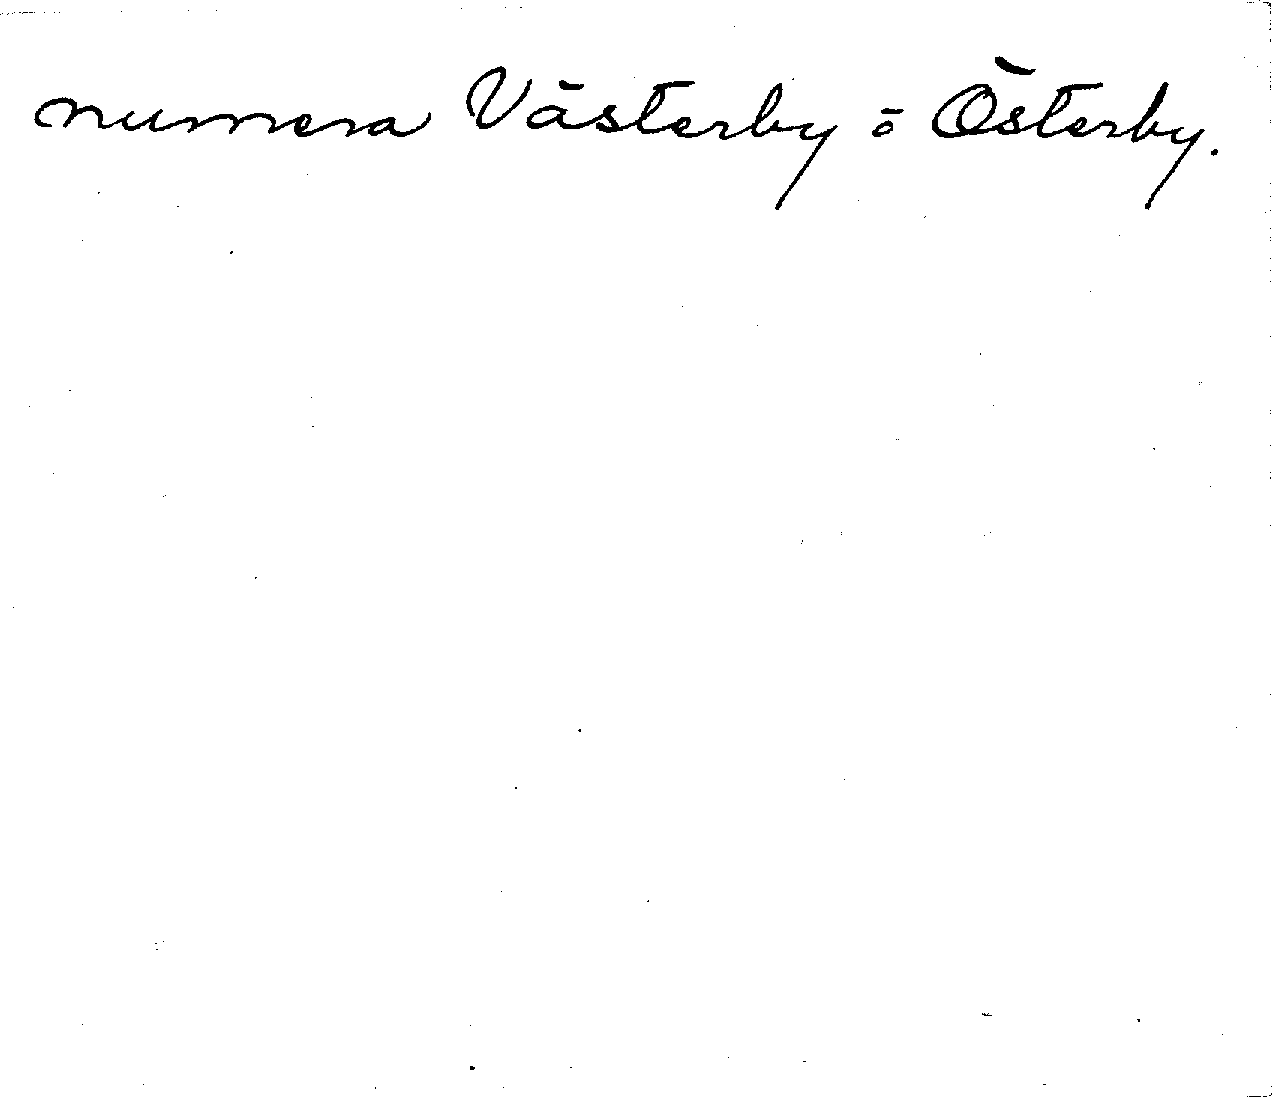 numera Västerby ö Österby.